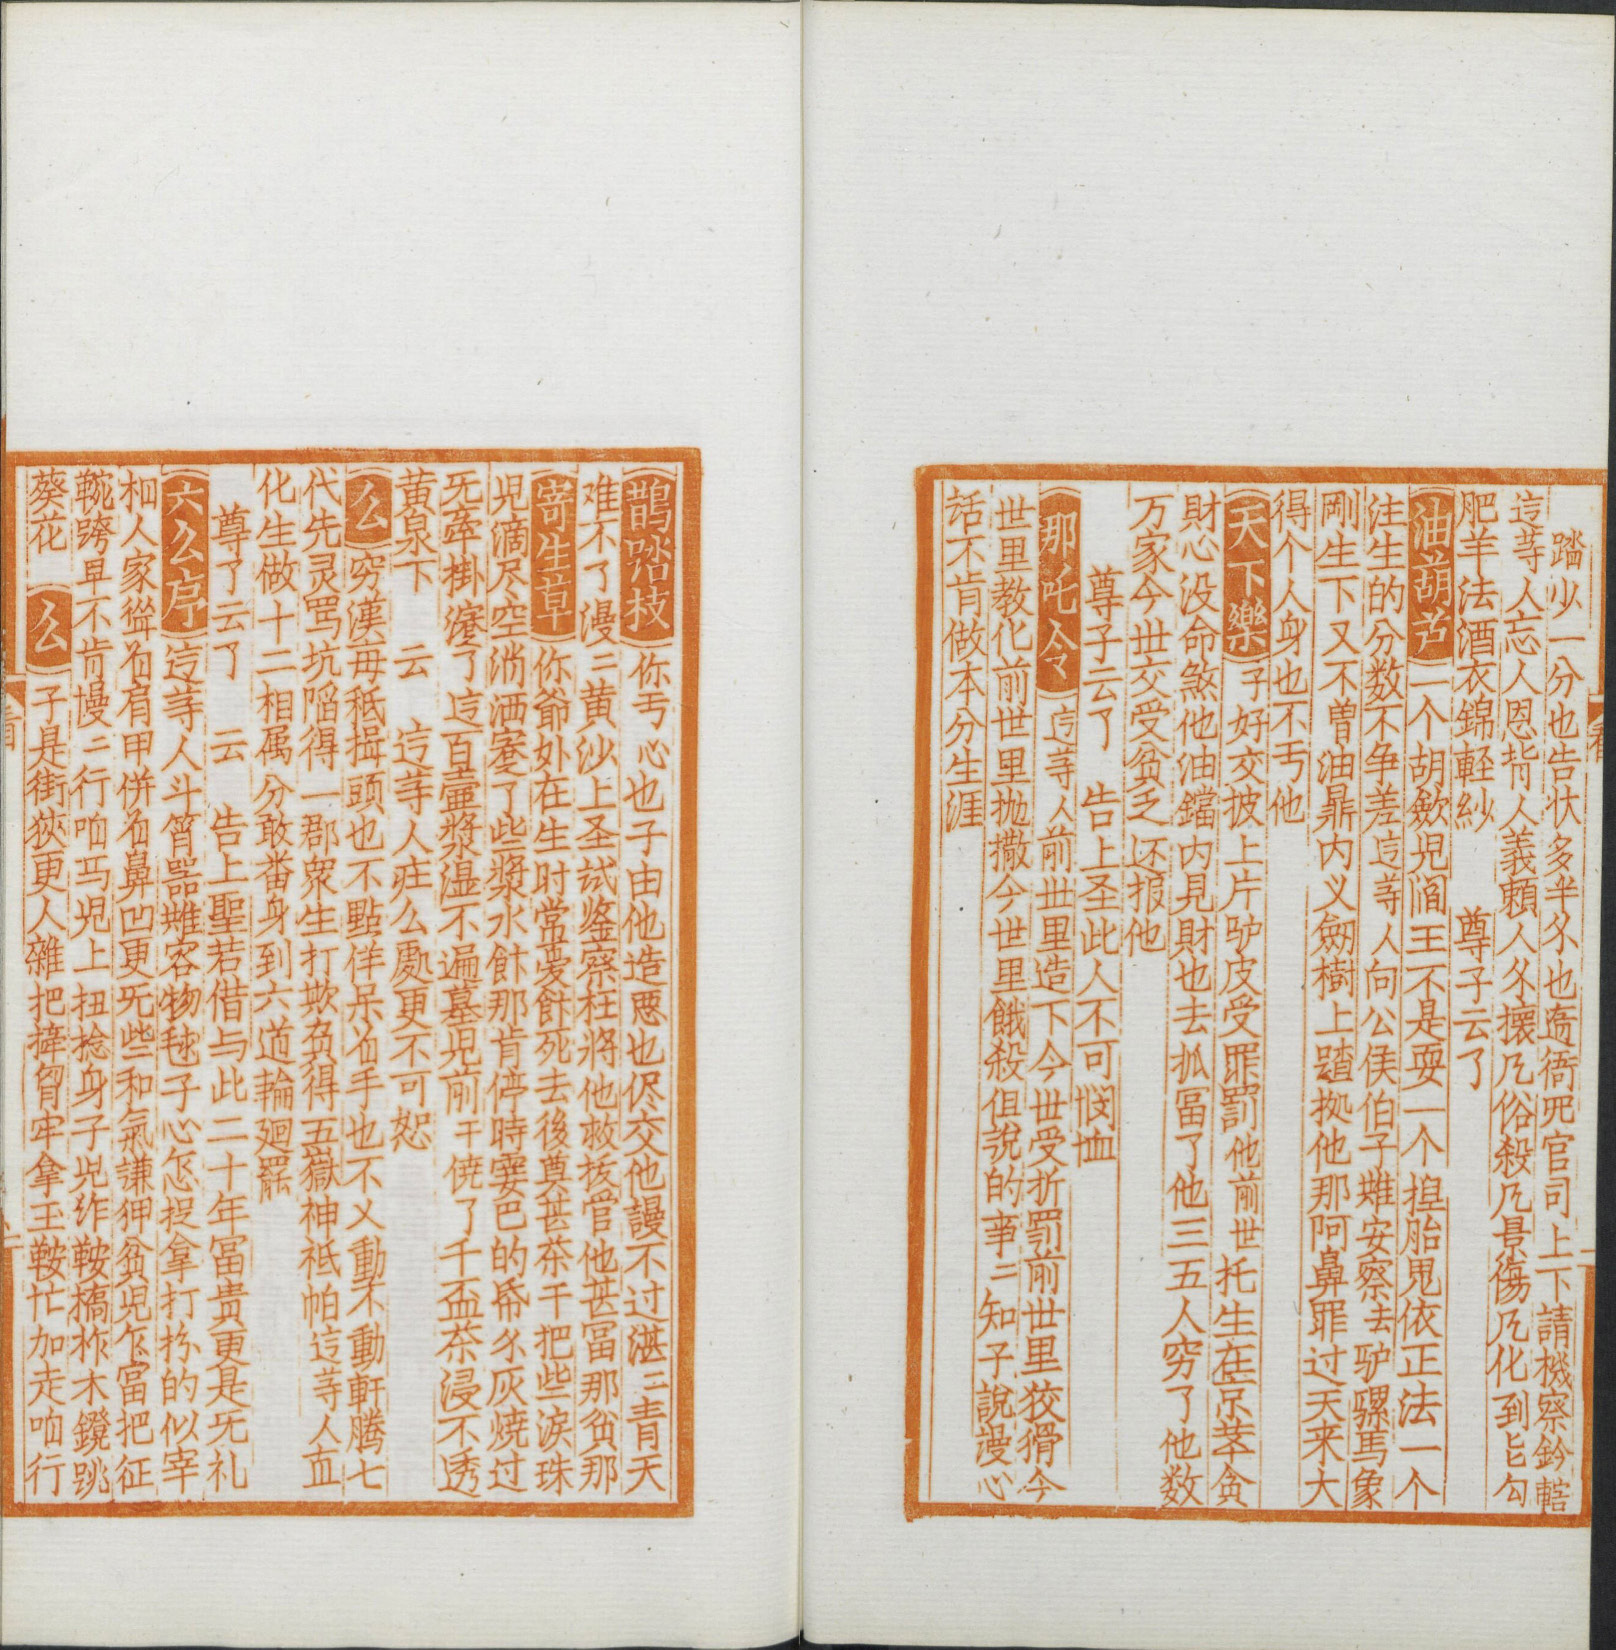 踏少一分也告状多半个也赍衙呪官司上下請機察鈐轄
这等人忘人恩背人義頼人个壞凢俗殺凢景傷凢化到匕勾
肥羊法酒衣錦軽紗　尊子云了
油葫芦一个胡歛児閻王不是耍一个揑胎鬼依正法一个
注生的分数不争差这等人向公侯伯子難安察去驴骡馬象
剛生下又不曽油鼎内义劒樹上蹅拠他那阿鼻罪过天来大
得个人身也不丐他
天下樂子好交披上片驴皮受罪罰他前世托生在京華貪
財心没命煞他油鐺内見財也去抓冨了他三五人穷了他数
万家今世交受贫乏还报他
尊子云了　告上圣此人不可憫恤
那吒令这等人前世里造下今世受折罰前世里狡猾今
世里教化前世里抛撒今世里餓殺但說的事二知子說謾心
話不肯做本分生涯
鵲踏枝你丐心也子由他造悪也侭交他謾不过湛二青天
难不了漫二黄沙上圣試鉴察枉將他救拔管他甚冨那贫那
寄生草你爺外在生时常憂飰死去後奠甚茶干把些淚珠
児滴尽空浇洒寒了些漿水飰那肯停時霎巴的帋不灰焼过
旡牵掛瀽了这百壷漿湿不遍墓児前干㳸了千盃茶浸不透
黄泉下　云　这等人在么處更不可恕
么穷漢毎秪揖頭也不點佯呆着手也不乂動不動軒腾七
代先灵骂坑䧟得一郡衆生打欺負得五嶽神祗帕这等人宜
化生做十二相属分敢番身到六道輪廻罷
尊了云了　云　告上聖若借与此二十年冨貴更是旡礼
六么序这等人斗筲器難容物毬子心怎捉拿打扮的似宰
相人家從着肩甲併着鼻凹更旡些和氣謙狎贫児乍冨把征
鞍跨早不肯慢二行咱马児上扭捻身子児作鞍橋柞木鐙跳
葵花　么子是街狹更人雜把㨝胷牢拿玉鞍忙加走咱行